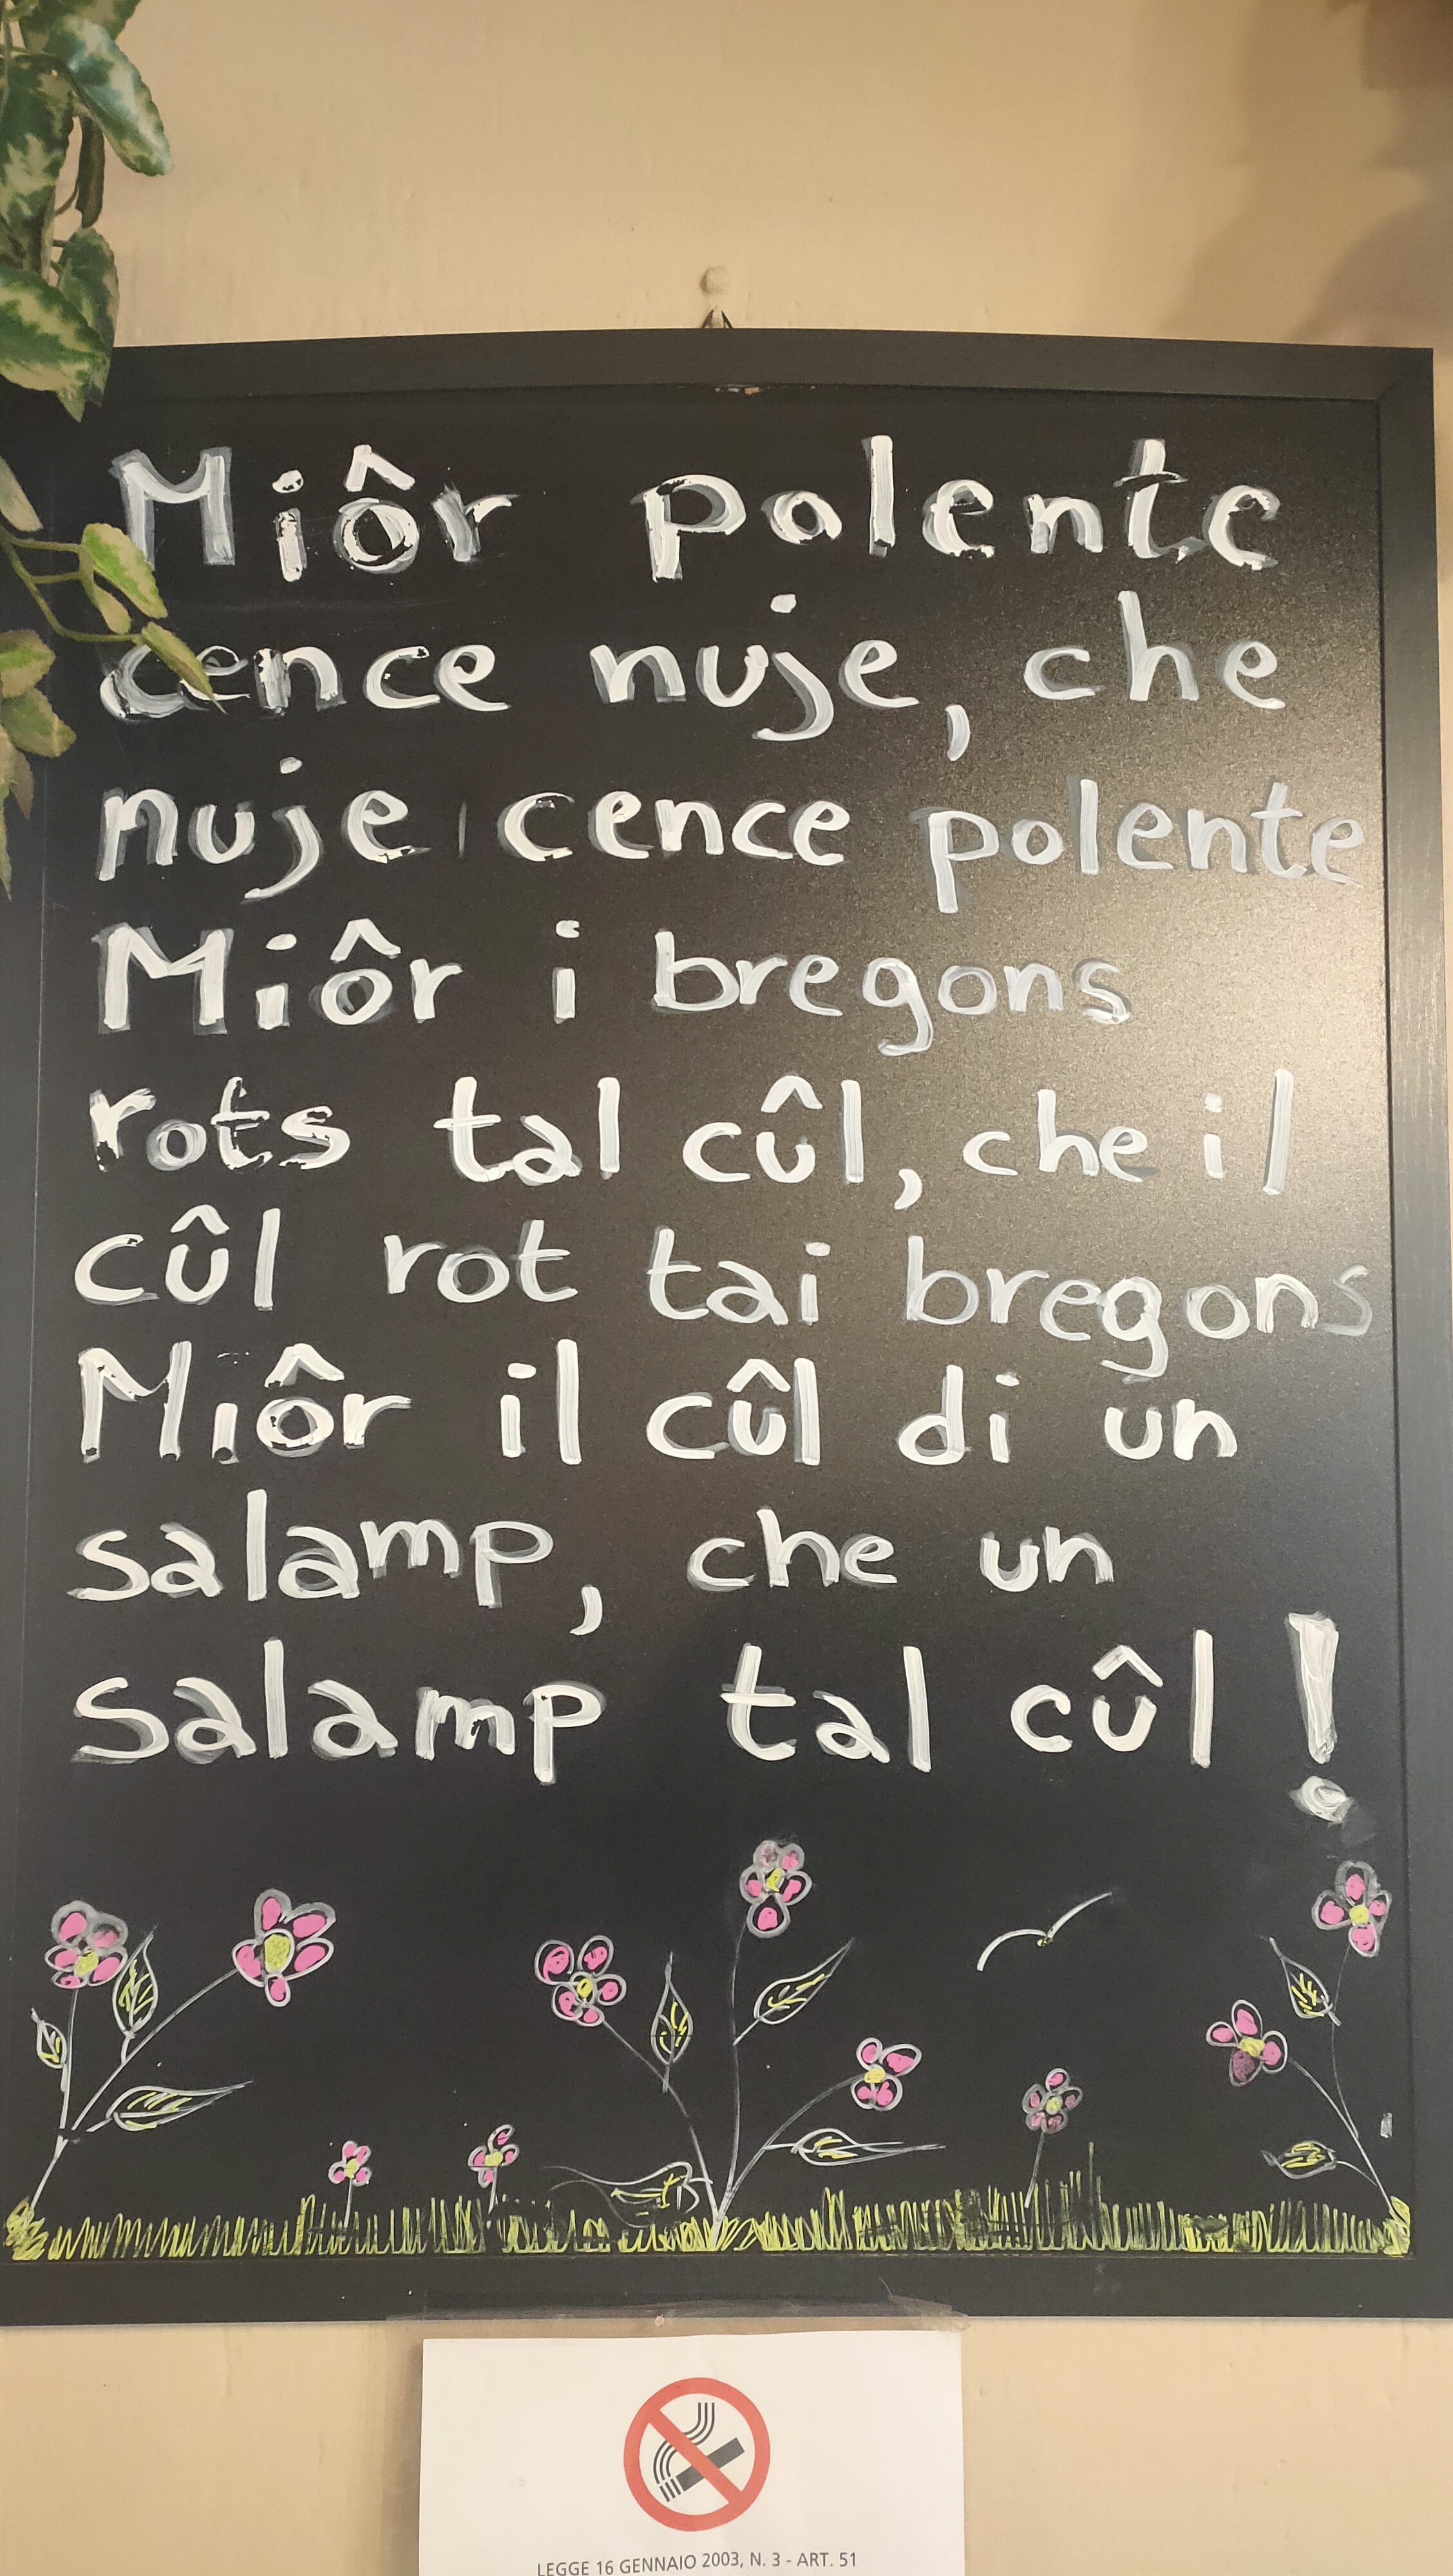 Miôr polente
cence nuje, che
nuje cence polente
Miôr i bregons
rots tal cûl, che il
cûl rot tai bregons
Miôr il cûl di un
salamp, che un
salamp tal cûl!
LEGGE 16 GENNAIO 2003, N. 3 - ART. 51